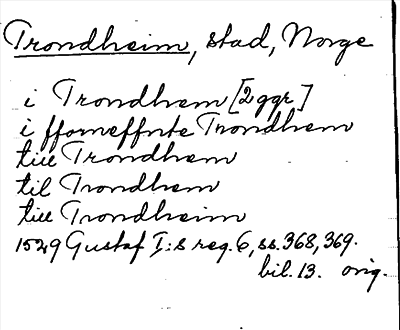 Trondheim, stad, Norge
i Trondhem [2 ggr]
i fforneffnte Trondhem
till Trondhem
til Trondhem
till Trondheim
1529 Gustaf I:s reg. 6, ss. 368, 369.
bil. 13. orig.